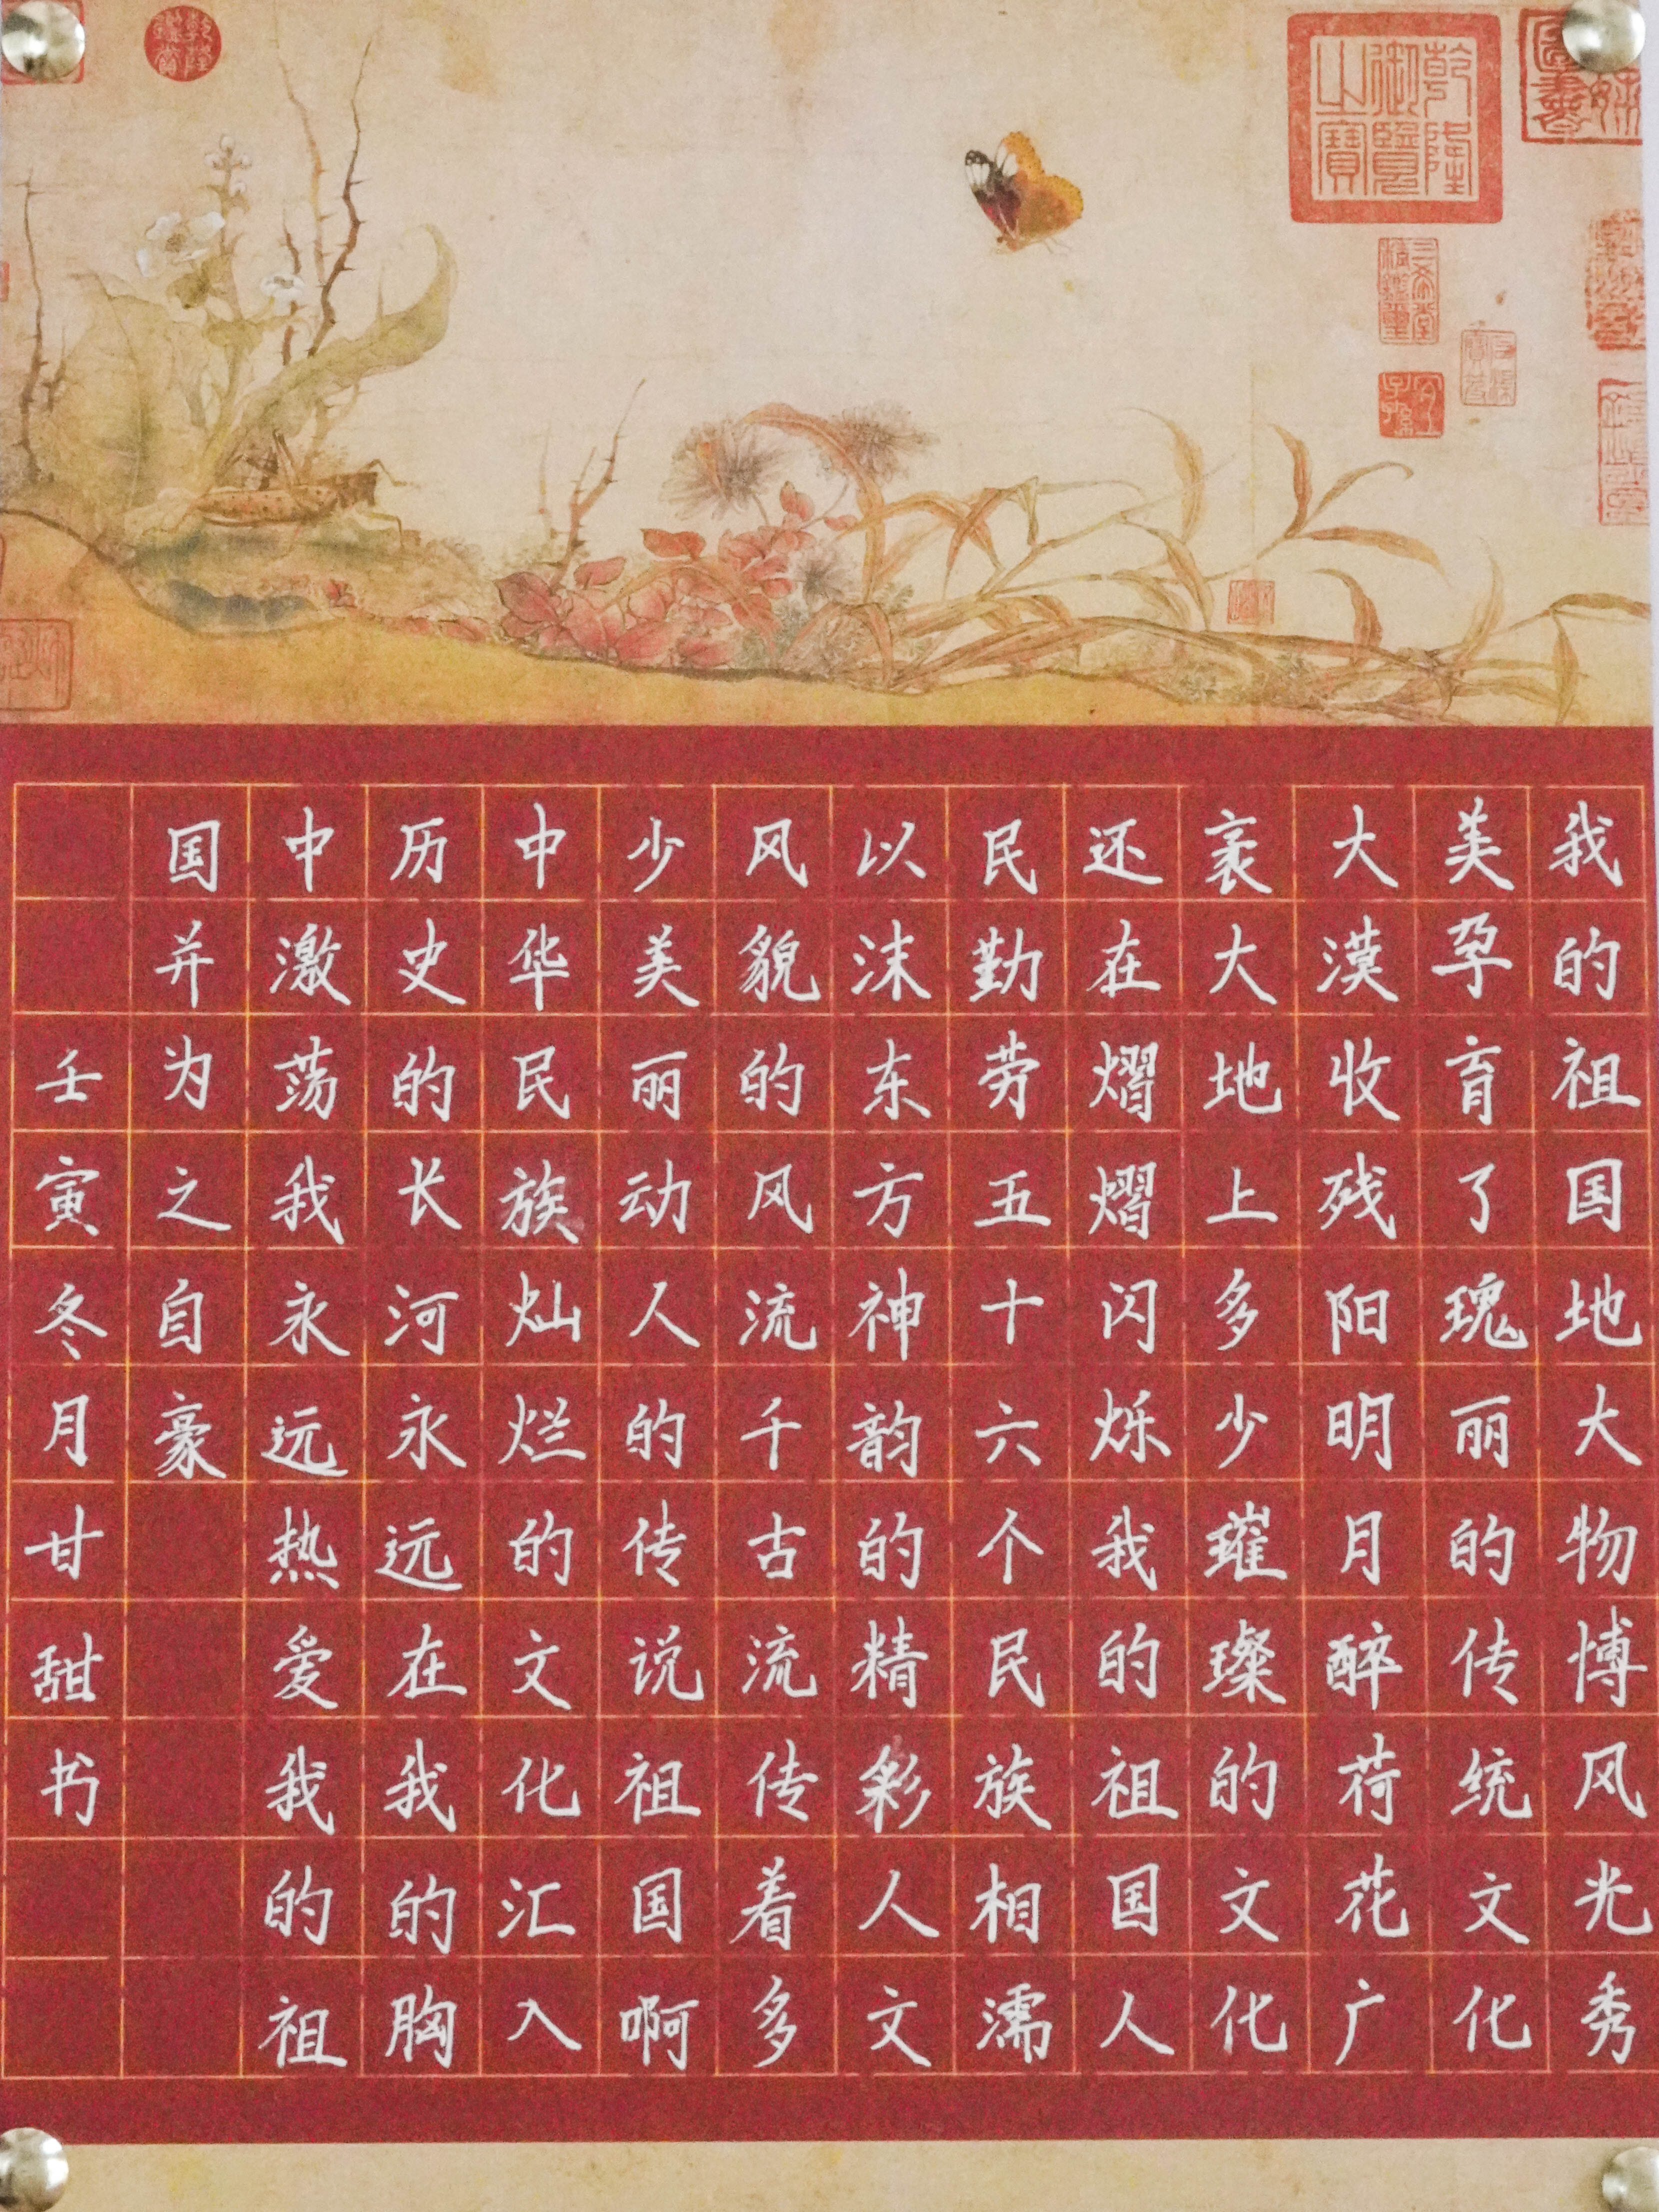 乾隆御覽之寶
三希堂精鑑璽
宜子孫
乾隆鑑賞
我的祖国地大物博风光秀
美孕育了瑰丽的传统文化
大漠收残阳明月醉荷花广
袤大地上多少璀璨的文化
还在熠熠闪烁我的祖国人
民勤劳五十六个民族相濡
以沫东方神韵的精彩人文
风貌的风流千古流传着多
少美丽动人的传说祖国啊
中华民族灿烂的文化汇入
历史的长河永远在我的胸
中激荡我永远热爱我的祖
国并为之自豪
壬寅冬月甘甜书